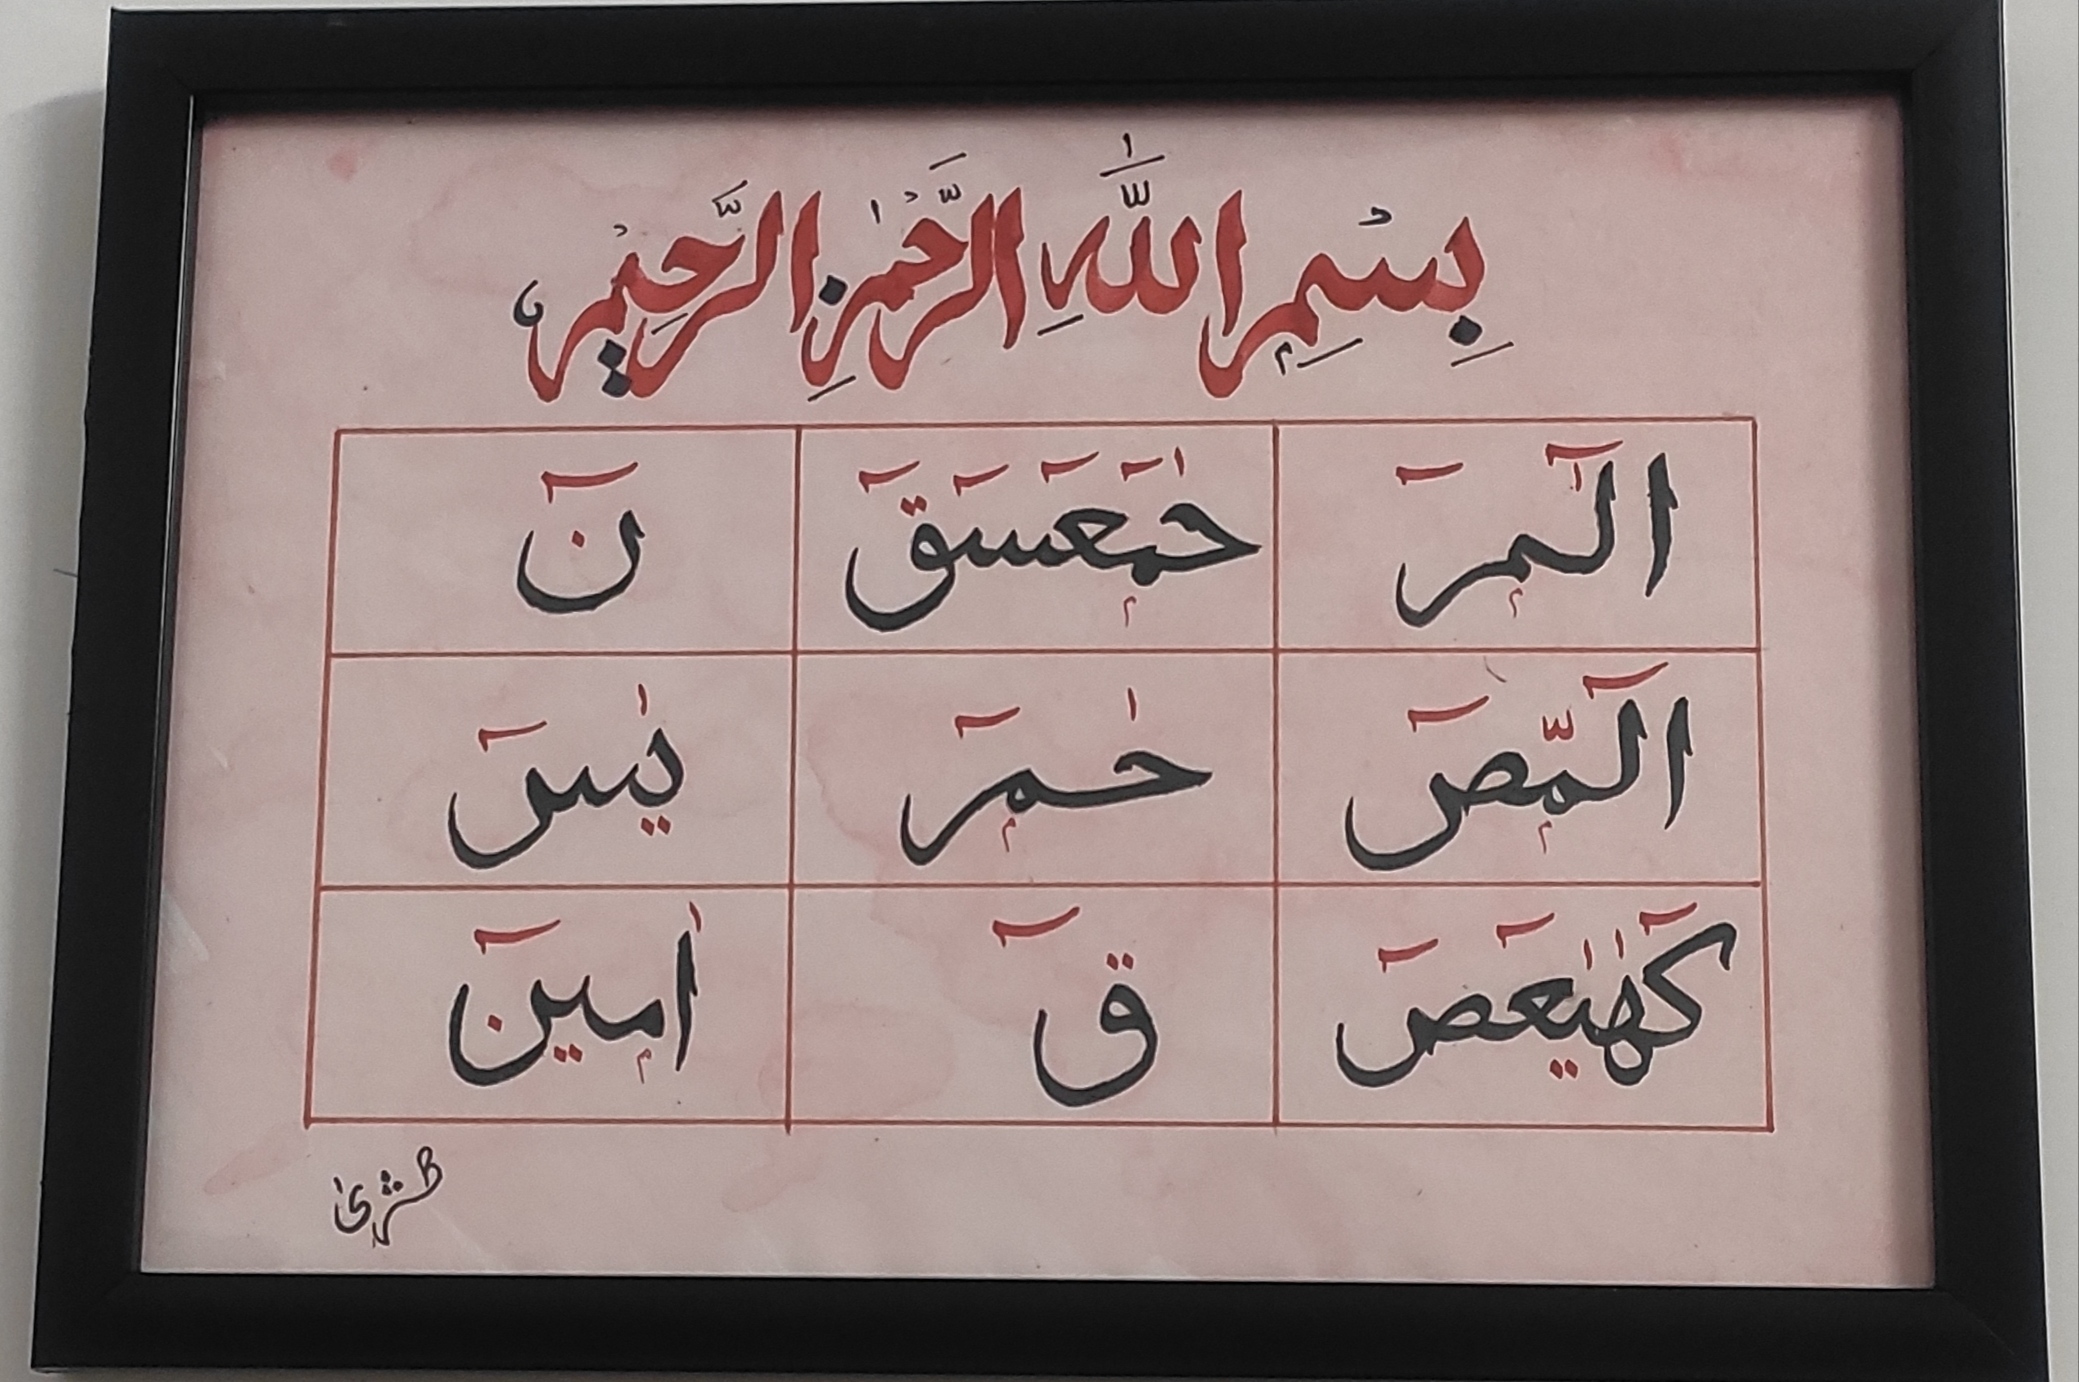 بِسْمِ اللّٰهِ الرَّحْمٰنِ الرَّحِيْمِ
الٓمٓرٓ حٰمٓعٓسٓقٓ نٓ
الٓمّٓصٓ حٰمٓ يٰسٓ
كٓهٰيٰعٓصٓ قٓ اٰمِيْنٓ
بشریٰ